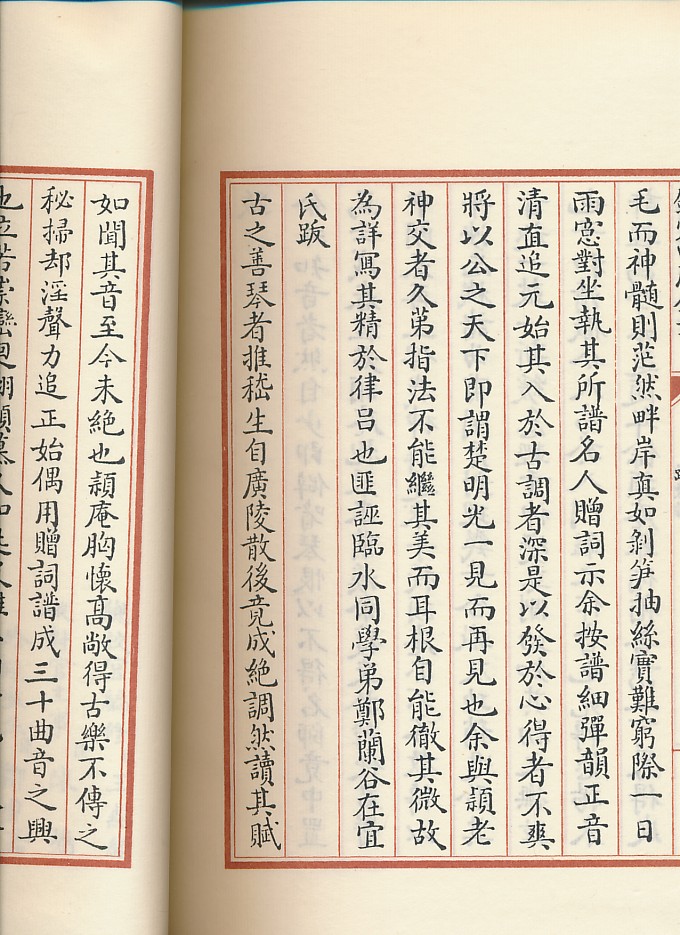 毛而神髓則茫然畔岸真如剝笋抽絲實難窮際一日
雨窓對坐執其所譜名人贈詞示余按譜細彈韻正音
清直追元始其入於古調者深是以發於心得者不爽
將以公之天下即謂楚明光一見而再見也余與頴老
神交者久苐指法不能繼其美而耳根自能徹其微故
為詳寫其精於律吕也匪誣臨水同學弟鄭蘭谷在宜
氏跋
古之善琴者推嵇生自廣陵散後竟成絶調然讀其賦
如聞其音至今未絶也頴庵胸懷髙敞得古樂不傳之
秘掃却淫聲力追正始偶用贈詞譜成三十曲音之興